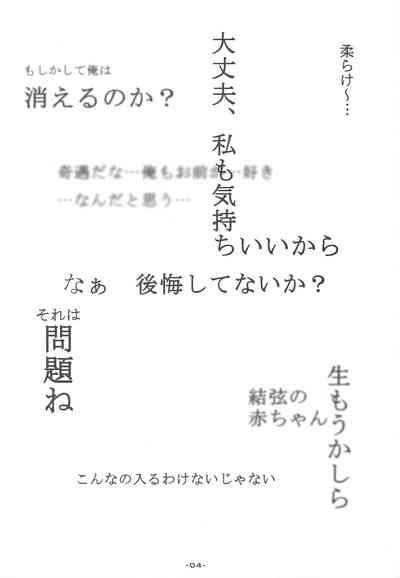 柔らけ～…
大丈夫、私も気持
ちいいから
もしかして俺は
消えるのか？
奇遇だな…俺もお前が…好き
…なんだと思う…
なぁ　後悔してないか？
それは
問題ね
生もうかしら
結弦の
赤ちゃん
こんなの入るわけないじゃない
-04-